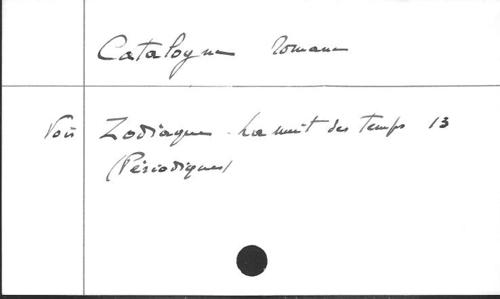 Catalogne romane
Voir Zodiaque - La nuit des temps 13
(Périodiques)